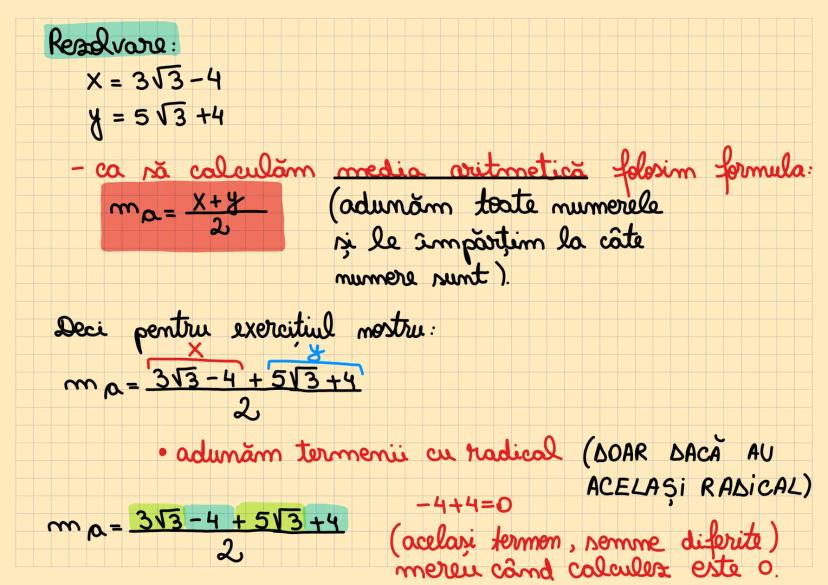 Rezolvare:
x = 3√3 - 4
y = 5√3 + 4
- ca să calculăm media aritmetică folosim formula:
m a = x + y / 2 (adunăm toate numerele
și le împărțim la câte
numere sunt).
Deci pentru exercițiul nostru:
x y
m a = 3√3 - 4 + 5√3 + 4 / 2
• adunăm termenii cu radical (DOAR DACĂ AU
ACELAȘI RADICAL)
-4+4=0
m a = 3√3 - 4 + 5√3 + 4 / 2
(același termen, semne diferite)
mereu când calculez este 0.